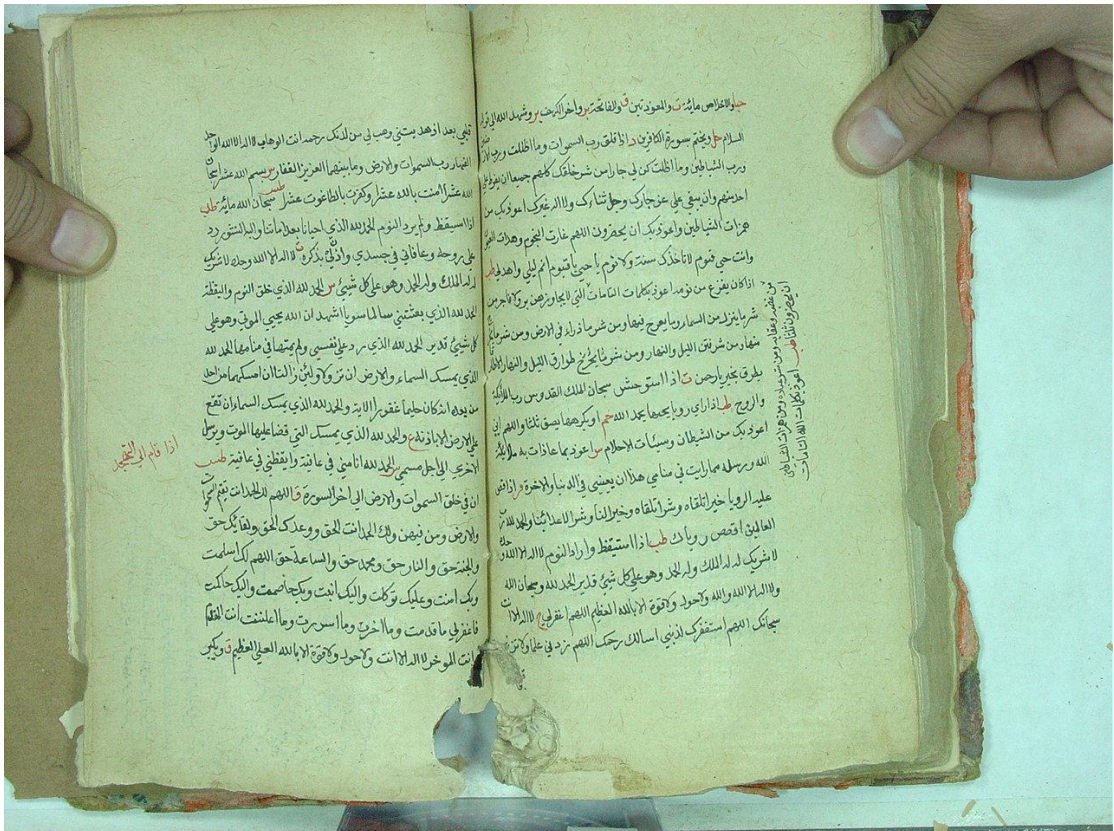 والاخلاص مائة والمعوذتين والفاتحة واخر الكهف وشهد الله الى قوله
السلام ويختم بسورة الكافرين اذا قلق رب السموات وما اظلت ورب
ورب الشياطين وما اظلت كن لي جارا من شر خلقك كلهم جميعا ان يفرط على
احد منهم وان يبغي علي عز جارك وجل ثناءك ولا اله غيرك اعوذ بك من
همزات الشياطين واعوذ بك ان يحضرون اللهم غارت النجوم وهدات
وانت حي قيوم لا تاخذك سنة ولا نوم يا حي يا قيوم انم ليلي واهد
اذا كان يفزع من نومه اعوذ بكلمات الله التامات التي لا يجاوزهن بر ولا فاجر من
شر ما ينزل من السماء وما يعرج فيها ومن شر ما ذراء في الارض ومن شر ما
منها ومن شر فتن الليل والنهار ومن شر ما يخرج طوارق الليل والنهار الا
يطرق بخير يا رحمن اذا استوحش سبحان الملك القدوس رب الملائكة
والروح طب اذا راي رويا يحبها يحمد الله او يكرهها يبصق ثلثا واللهم اني
اعوذ بك من الشيطان وسيئات الاحلام اعوذ بما عاذت به ملائكة
الله ورسله مما رايت في منامي هذا ان يصيبني في الدنيا والاخرة اذا قص
عليه الرويا خيرا تلقاه وشرا تلقاه وخيرا لنا وشرا لاعدائنا والحمد لله رب
العالمين اقصص روياك طب اذا استيقظ واراد النوم لا اله الا الله
لا شريك له له الملك وله الحمد وهو على كل شيئ قدير الحمد لله وسبحان الله
ولا اله الا الله والله ولا حول ولا قوة الا بالله العظيم اللهم اغفر لي لا اله الا
سبحانك اللهم استغفرك لذنبي اسالك رحمتك اللهم زدني علما ولا تزغ
قلبي بعد اذ هديتني وهب لي من لدنك رحمة انك انت الوهاب لا اله الا الله
القهار رب السموات والارض وما بينهما العزيز الغفار بسم الله عشرا
الله عشرا امنت بالله عشرا وكفرت بالطاغوت عشرا سبحان الله مائة طب
اذا استيقظ ولم يرد النوم الحمد لله الذي احيانا بعد ما امتنا واليه النشور رد
علي روحي وعافاني في جسدي واذن لي بذكره لا اله الا الله وحده لا شريك
له له الملك وله الحمد وهو على كل شيئ الحمد لله الذي خلق النوم واليقظة
الحمد لله الذي بعثني سالما سويا اشهد ان الله يحيي الموتى وهو على
كل شيئ قدير الحمد لله الذي رد علي نفسي ولم يمتها في منامها الحمد لله
الذي يمسك السماء والارض ان تزولا ولئن زالتا ان امسكهما من احد
من بعده انه كان حليما غفورا الاية والحمد لله الذي يمسك السماء ان تقع
على الارض الا باذنه والحمد لله الذي يمسك التي قضا عليها الموت ويرسل
الاخرى الى اجل مسمى الحمد لله انامني في عافية وايقظني في عافية طب
اذا قام الى التهجد
ان في خلق السموات والارض الى اخر السورة اللهم لك الحمد انت قيم
والارض ومن فيهن ولك الحمد انت الحق ووعدك الحق ولقائك حق
والجنة حق والنار حق ومحمد حق والساعة حق اللهم لك اسلمت
وبك امنت وعليك توكلت واليك انبت وبك خاصمت واليك حاكمت
فاغفر لي ما قدمت وما اخرت وما اسررت وما اعلنت انت المقدم
وانت الموخر لا اله الا انت ولا حول ولا قوة الا بالله العلي العظيم ويكبر
من غضبه وعقابه ومن شر عباده ومن همزات الشياطين
ان يحضرون ثلثا طب اعوذ بكلمات الله التامات